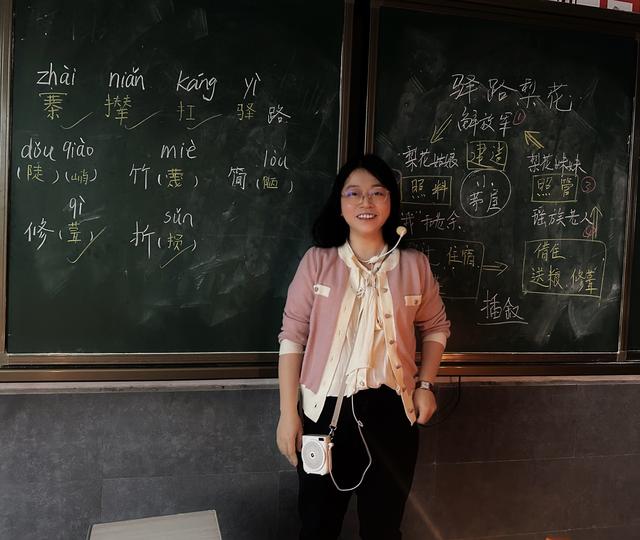 zhài niǎn káng yì
寨 撵 扛 驿路
dǒu qiào miè lòu
(陡)(峭) 竹(篾) 简(陋)
qì sǔn
修(葺) 折(损)
驿路梨花
解放军①
梨花姑娘 建造 梨花妹妹
照料 小 照管 ③
茅屋
我"和老余 瑶族老人
住宿 借住
送粮、修葺
插叙